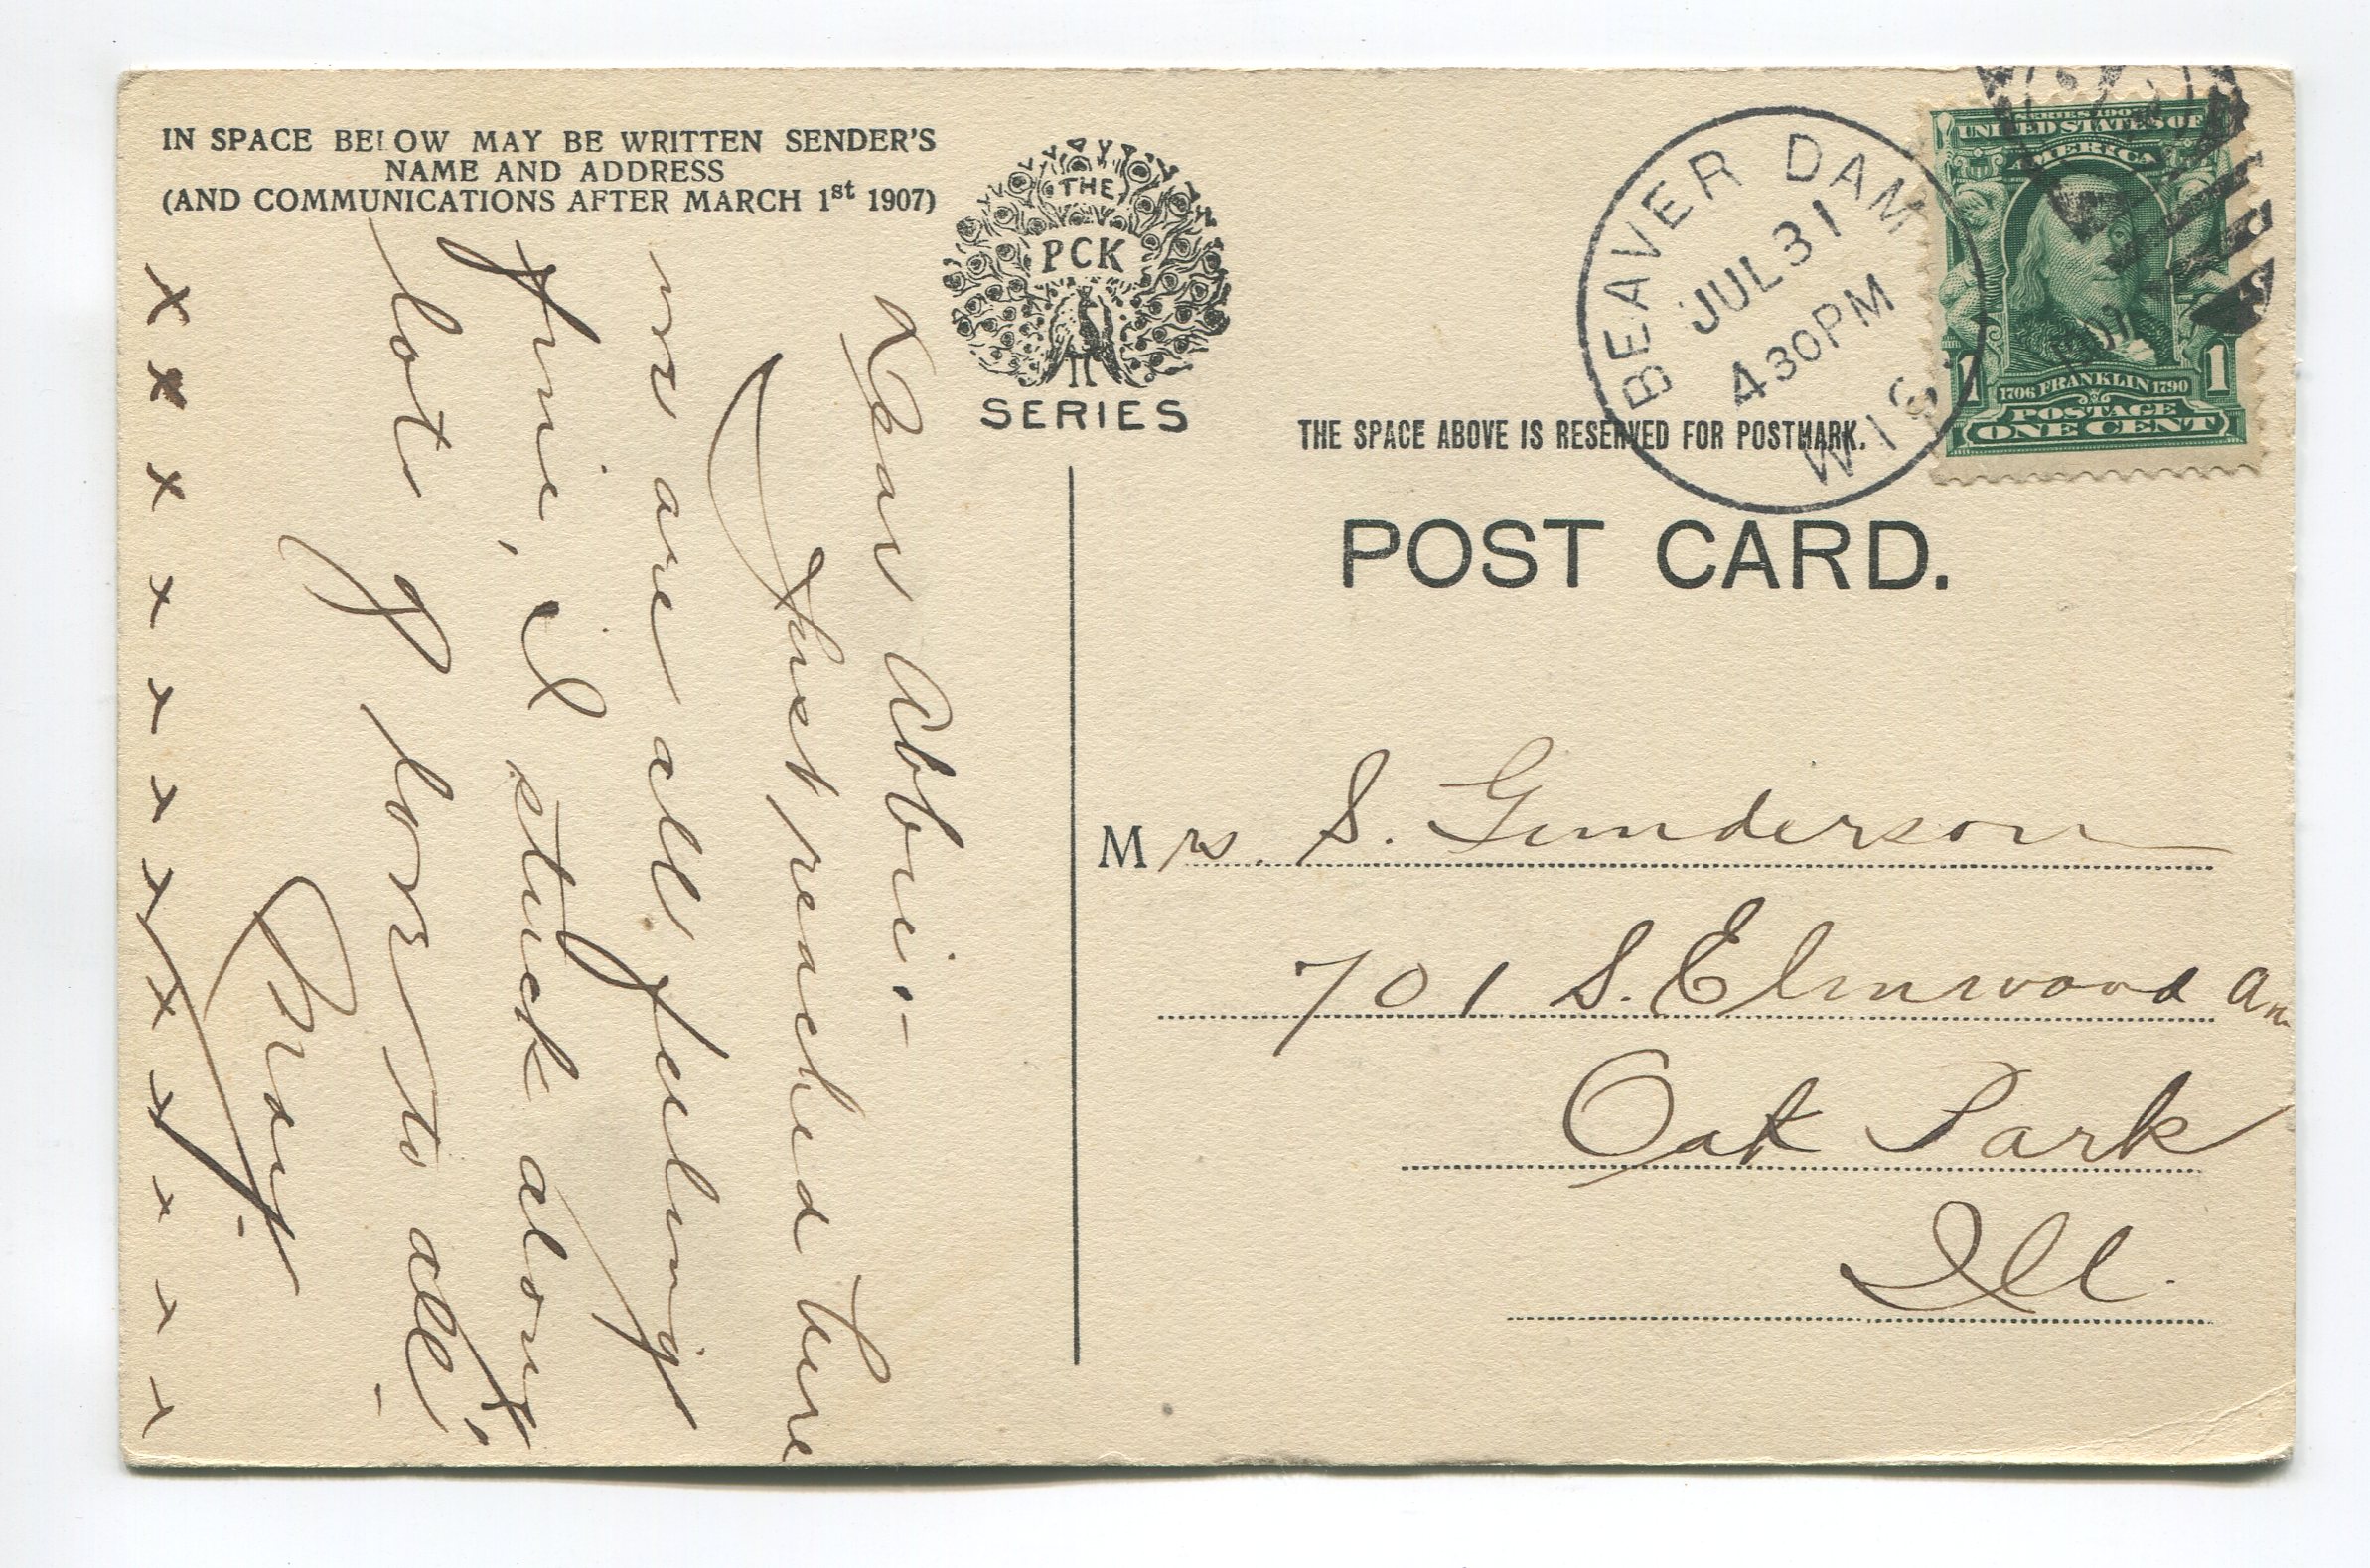 IN SPACE BELOW MAY BE WRITTEN SENDER'S
NAME AND ADDRESS
(AND COMMUNICATIONS AFTER MARCH 1st 1907)
THE
PCK
SERIES
BEAVER DAM
JUL 31
430PM
WIS.
UNITED STATES OF
AMERICA
1 1
1706 FRANKLIN 1790
POSTAGE
ONE CENT
THE SPACE ABOVE IS RESERVED FOR POSTMARK.
POST CARD.
Dear Abbie:-
Just reached here
we are all feeling
fine, il stuck along
lots of love to all
x x x x x x x x x x x x
Mrs. S. Gunderson
701 S. Elmwood Av
Oak Park
Ill.